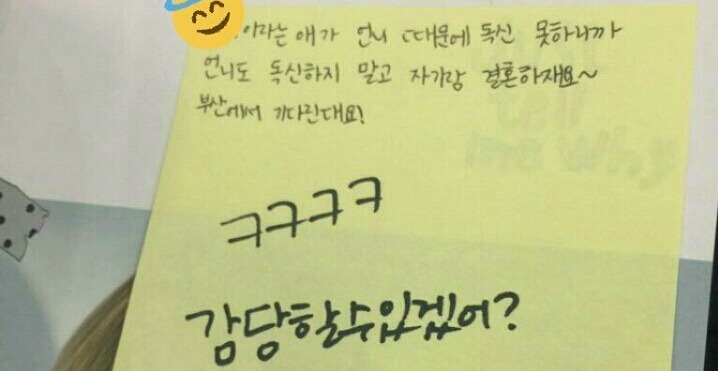 이라는 애가 언니 때문에 독신 못하니까
언니도 독신하지 말고 자기랑 결혼하재요~
부산에서 기다린대요!
ㅋㅋㅋㅋ
감당할수있겠어?